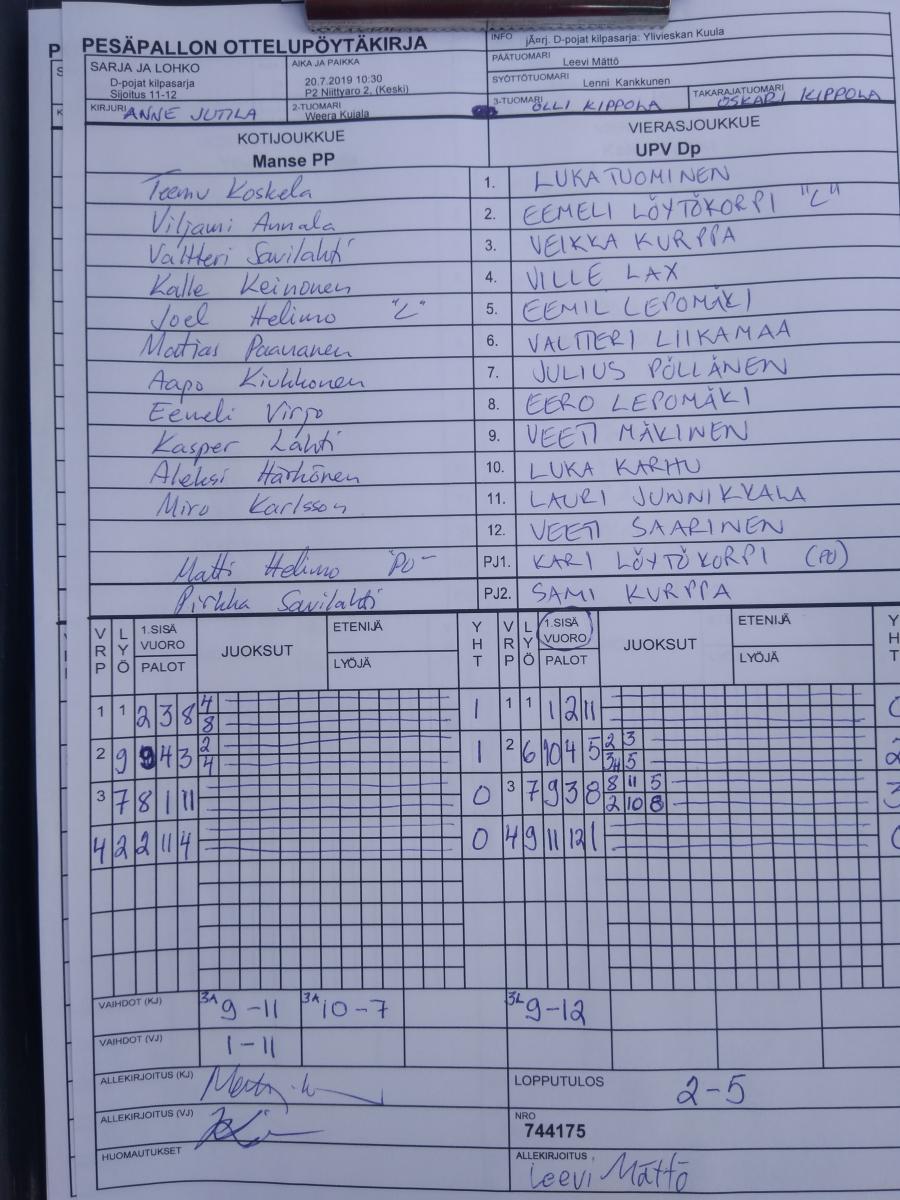 PESÄPALLON OTTELUPÖYTÄKIRJA
INFO jÄ¤rj. D-pojat kilpasarja: Ylivieskan Kuula
SARJA JA LOHKO
D-pojat kilpasarja
Sijoitus 11-12
AIKA JA PAIKKA
20.7.2019 10:30
P2 Niittyaro 2, (Keski)
PÄÄTUOMARI Leevi Mättö
SYÖTTÖTUOMARI Lenni Kankkunen
KIRJURI ANNE JUTILA
2-TUOMARI
Weera Kujala
3-TUOMARI OLLI KIPPOLA
TAKARAJATUOMARI
OSKARI KIPPOLA
KOTIJOUKKUE
Manse PP
VIERASJOUKKUE
UPV Dp
Teemu Koskela 1. LUKA TUOMINEN
Viljami Annala 2. EEMELI LÖYTÖKORPI "L"
Valtteri Savilahti 3. VEIKKA KURPPA
Kalle Keinonen 4. VILLE LAX
Joel Helimo "L" 5. EEMIL LEPOMÄKI
Matias Paananen 6. VALTTERI LIIKAMAA
Aapo Kiukkonen 7. JULIUS PÖLLÄNEN
Eemeli Virjo 8. EERO LEPOMÄKI
Kasper Lahti 9. VEETI MÄKINEN
Aleksi Härkönen 10. LUKA KARHU
Miro Karlsson 11. LAURI JUNNIKKALA
12. VEETI SAARINEN
Matti Helimo "PJ" PJ1. KARI LÖYTÖKORPI (PJ)
Pirkka Savilahti PJ2. SAMI KURPPA
VRP LYÖ 1.SISÄ VUORO PALOT JUOKSUT ETENIJÄ LYÖJÄ YHT VRP LYÖ 1.SISÄ VUORO PALOT JUOKSUT ETENIJÄ LYÖJÄ YHT
1 1 2 3 8 4 1 1 1 1 2 11 0
8
2 9 9 4 3 2 1 2 6 10 4 5 2 3 2
4 5
3 7 8 1 11 0 3 7 9 3 8 8 11 5 3
2 10 8
4 2 2 11 4 0 4 9 11 12 1 0
VAIHDOT (KJ) 3A 9-11 3A 10-7 3L 9-12
VAIHDOT (VJ) 1-11
ALLEKIRJOITUS (KJ)
LOPPUTULOS 2-5
ALLEKIRJOITUS (VJ)
NRO
744175
HUOMAUTUKSET
ALLEKIRJOITUS
Leevi Mättö